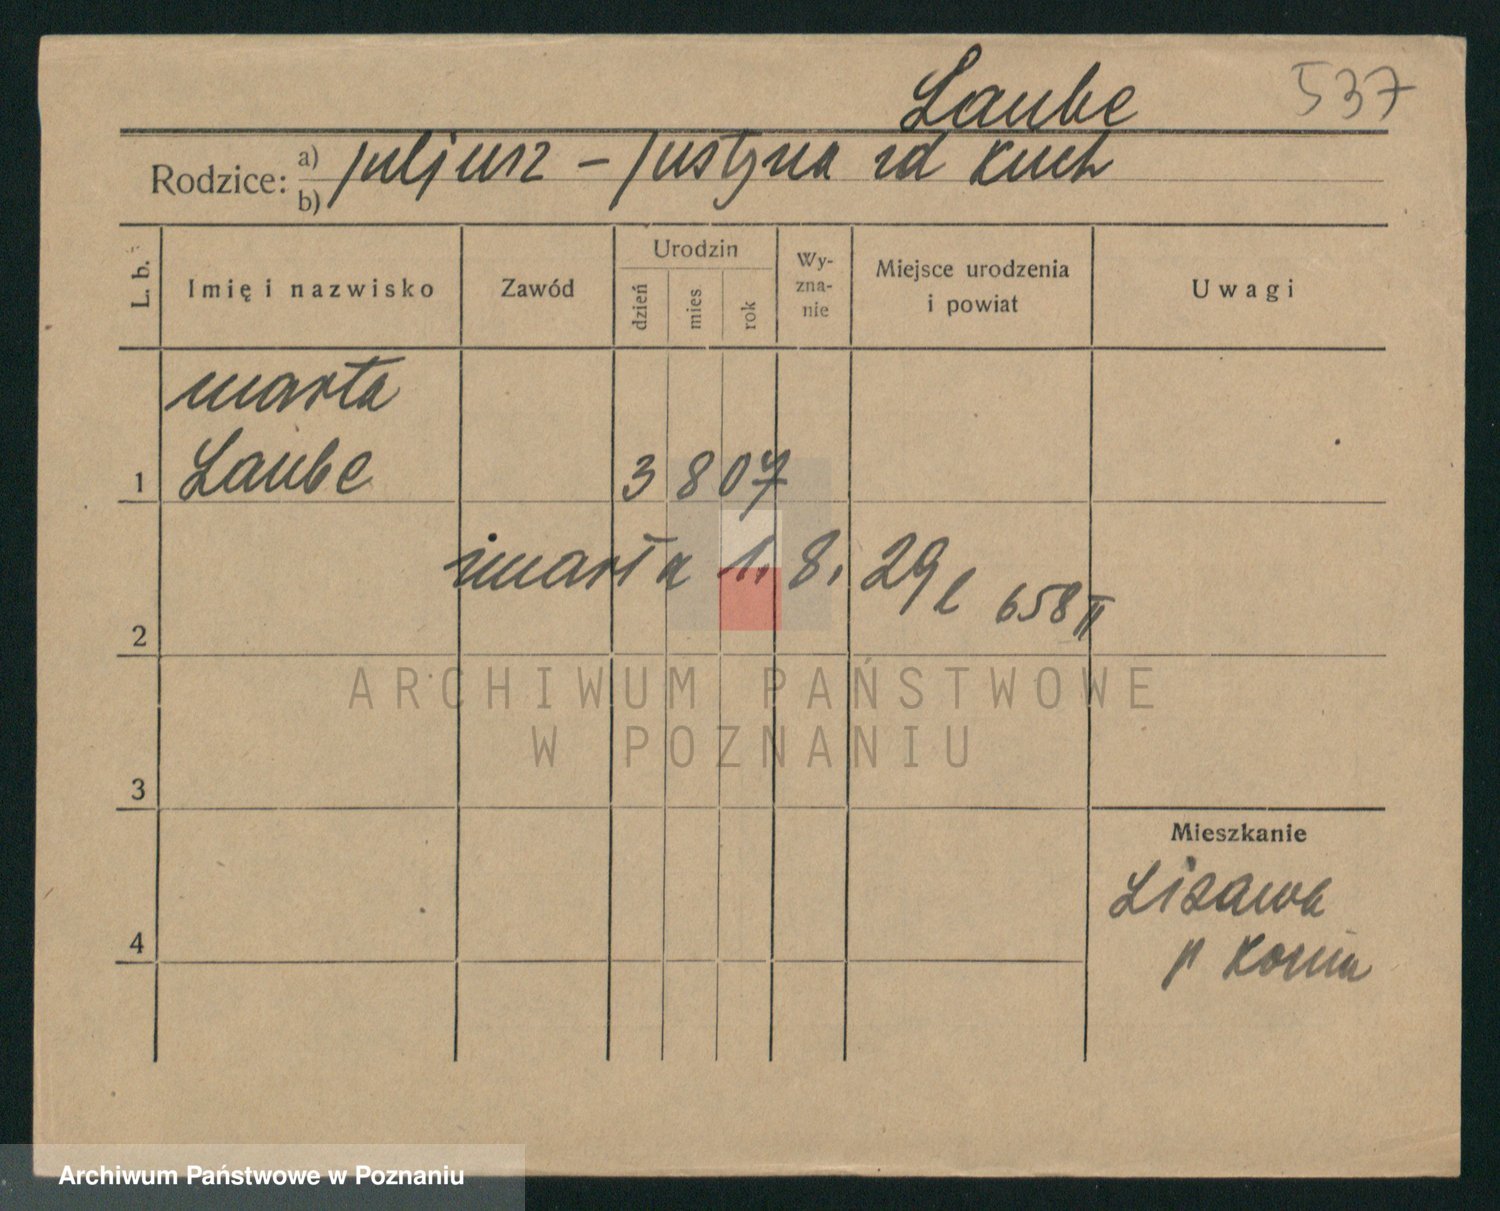 Laube 537
Rodzice: a) Juljusz – Justyna zd Kuch
b)
L. b. Imię i nazwisko Zawód Urodzin dzień mies rok Wy-zna-nie Miejsce urodzenia i powiat Uwagi
Marta
1 Laube 3 8 07
zmarła 1. 8. 29 l 658 II
2
ARCHIWUM PAŃSTWOWE
W POZNANIU
3
Mieszkanie
Lizawa
4
p Konin
Archiwum Państwowe w Poznaniu